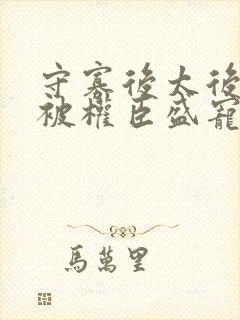 守寡後太後
被權臣盛寵
馬萬里